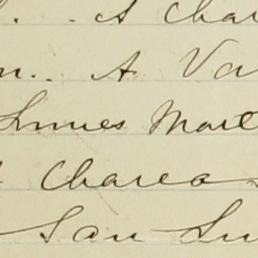 . . A Cha
. . A Va
Innes Mart
Charca
San Lu